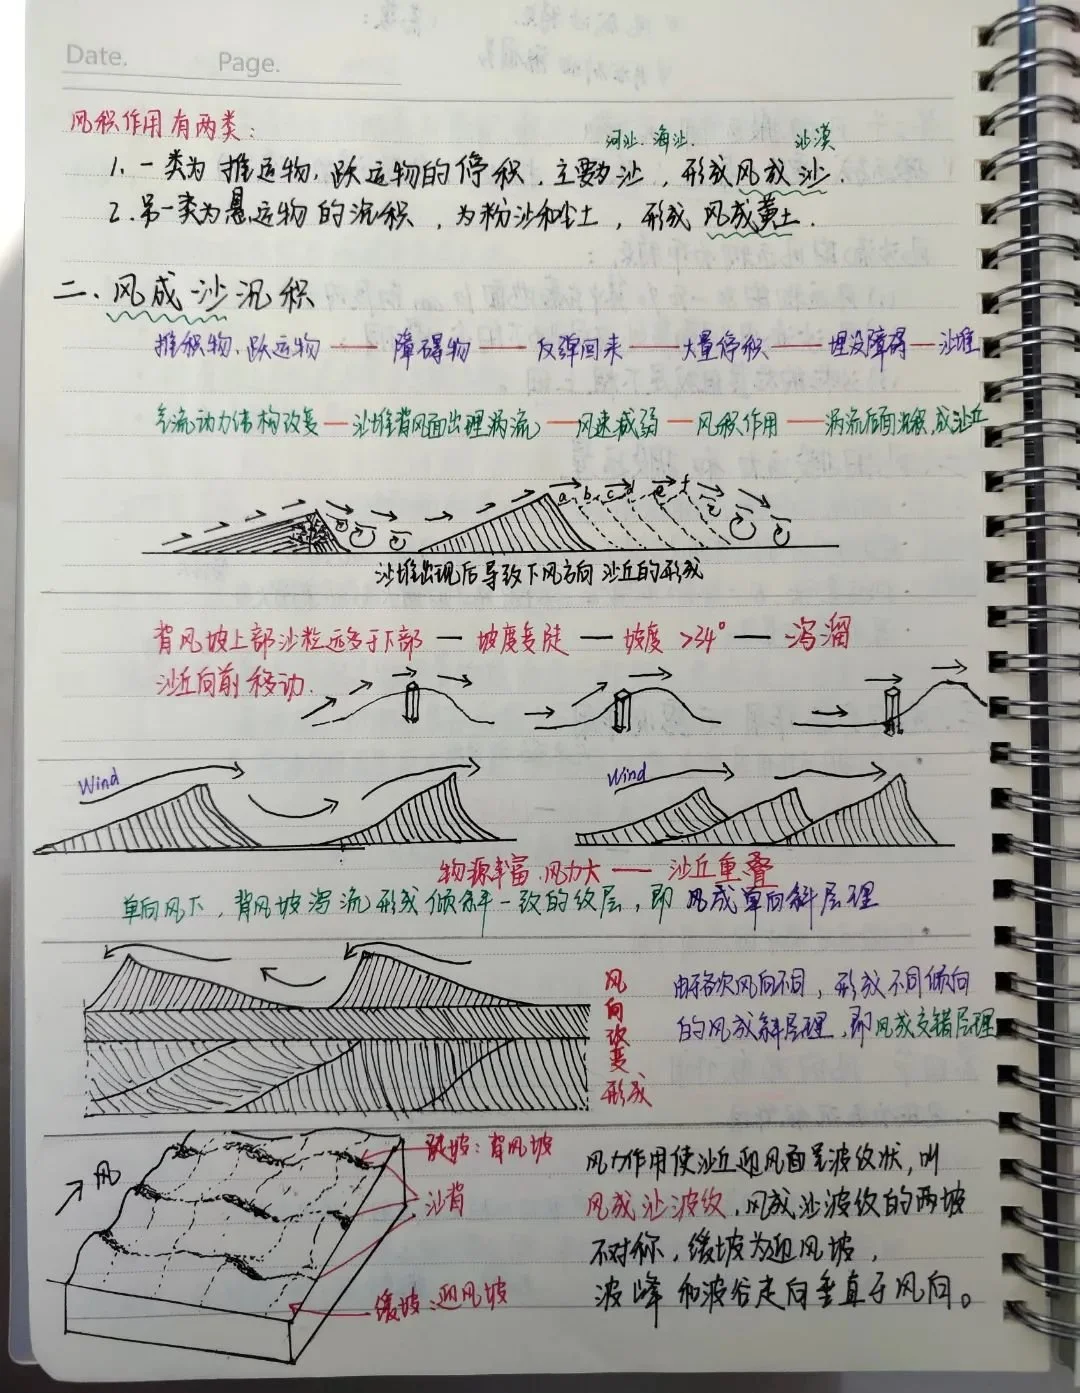 Date.
Page.
风积作用有两类:
河沙.海沙.
沙漠
1.一类为推运物、跃运物的停积,主要为沙,形成风成沙.
2.另一类为悬运物的沉积,为粉沙和尘土,形成风成黄土.
二、风成沙沉积
推积物、跃运物—障碍物—反弹回来—大量停积—埋没障碍—沙堆
气流动力结构改变—沙堆背风面出现涡流—风速减弱—风积作用—涡流后面沉积,成沙丘
a b c d e f
沙堆出现后导致下风方向沙丘的形成
背风坡上部沙粒远多于下部—坡度变陡—坡度>34°—泻溜
沙丘向前移动.
Wind
Wind
物源丰富、风力大—沙丘重叠
单向风下,背风坡泻流形成倾斜一致的纹层,即风成单向斜层理
风向改变形成
由于各次风向不同,形成不同倾向
的风成斜层理,即风成交错层理
风
陡坡:背风坡
沙脊
缓坡:迎风坡
风力作用使沙丘迎风面呈波纹状,叫
风成沙波纹,风成沙波纹的两坡
不对称,缓坡为迎风坡,
波峰和波谷走向垂直于风向。